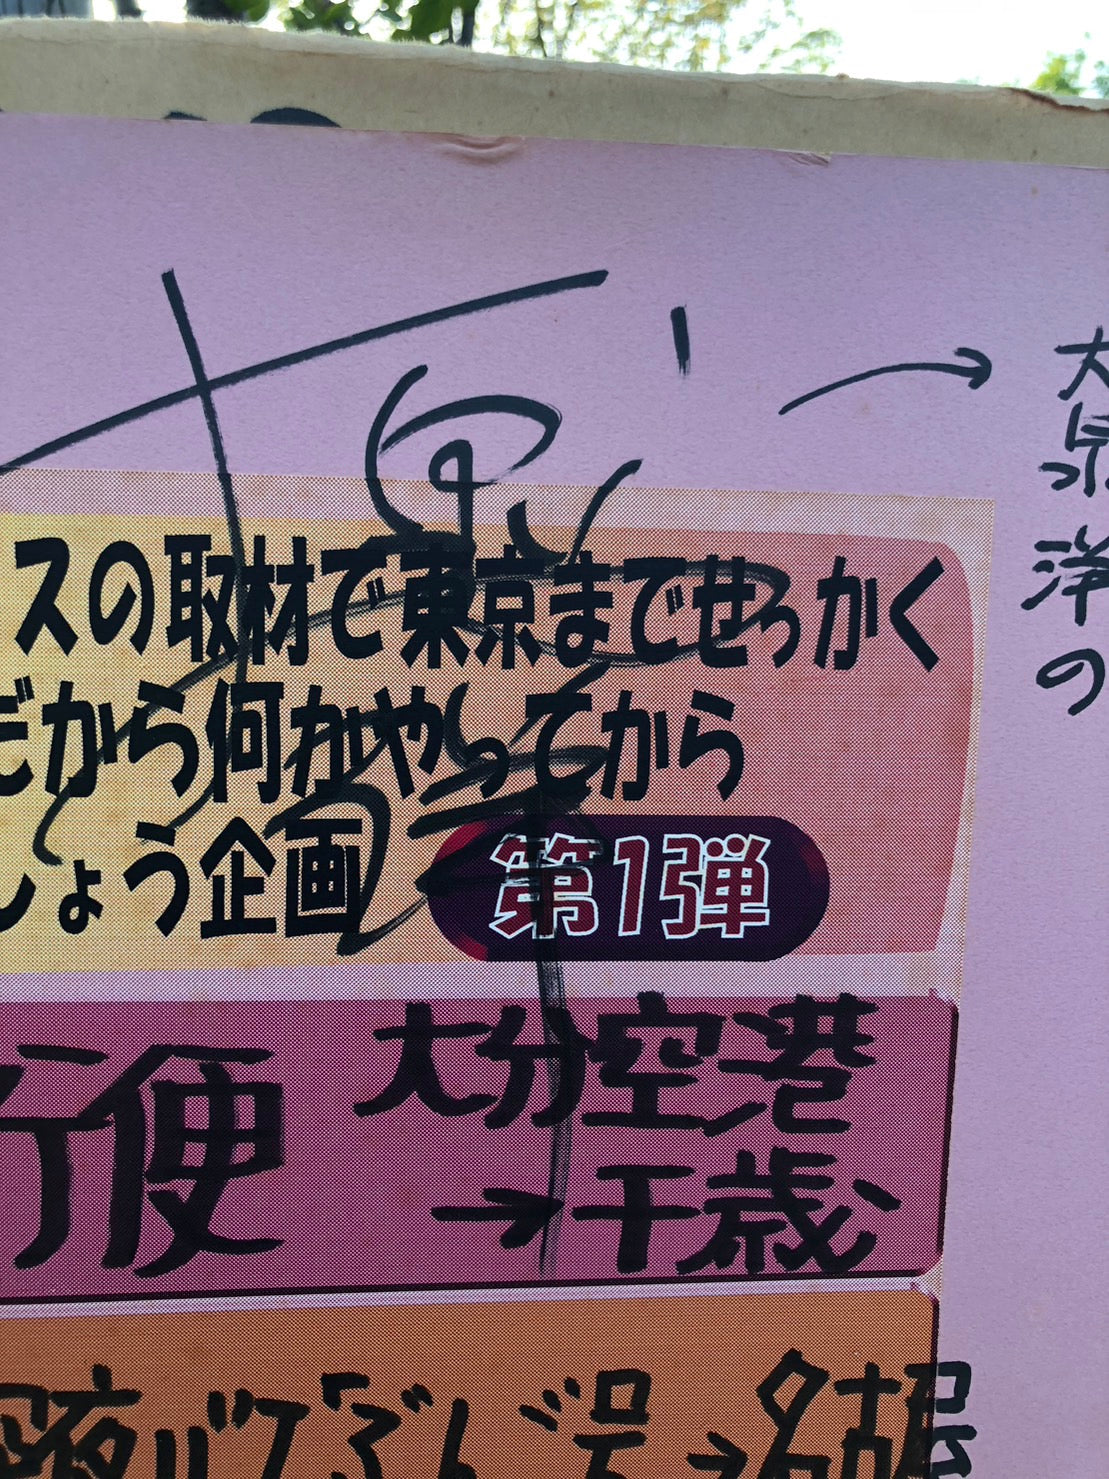 スの取材で東京まできせっかく
だから何かやってから
しょう企画
第1弾
行便
大分空港
→千歳
夜バスぶんご号→名古屋
大泉洋の